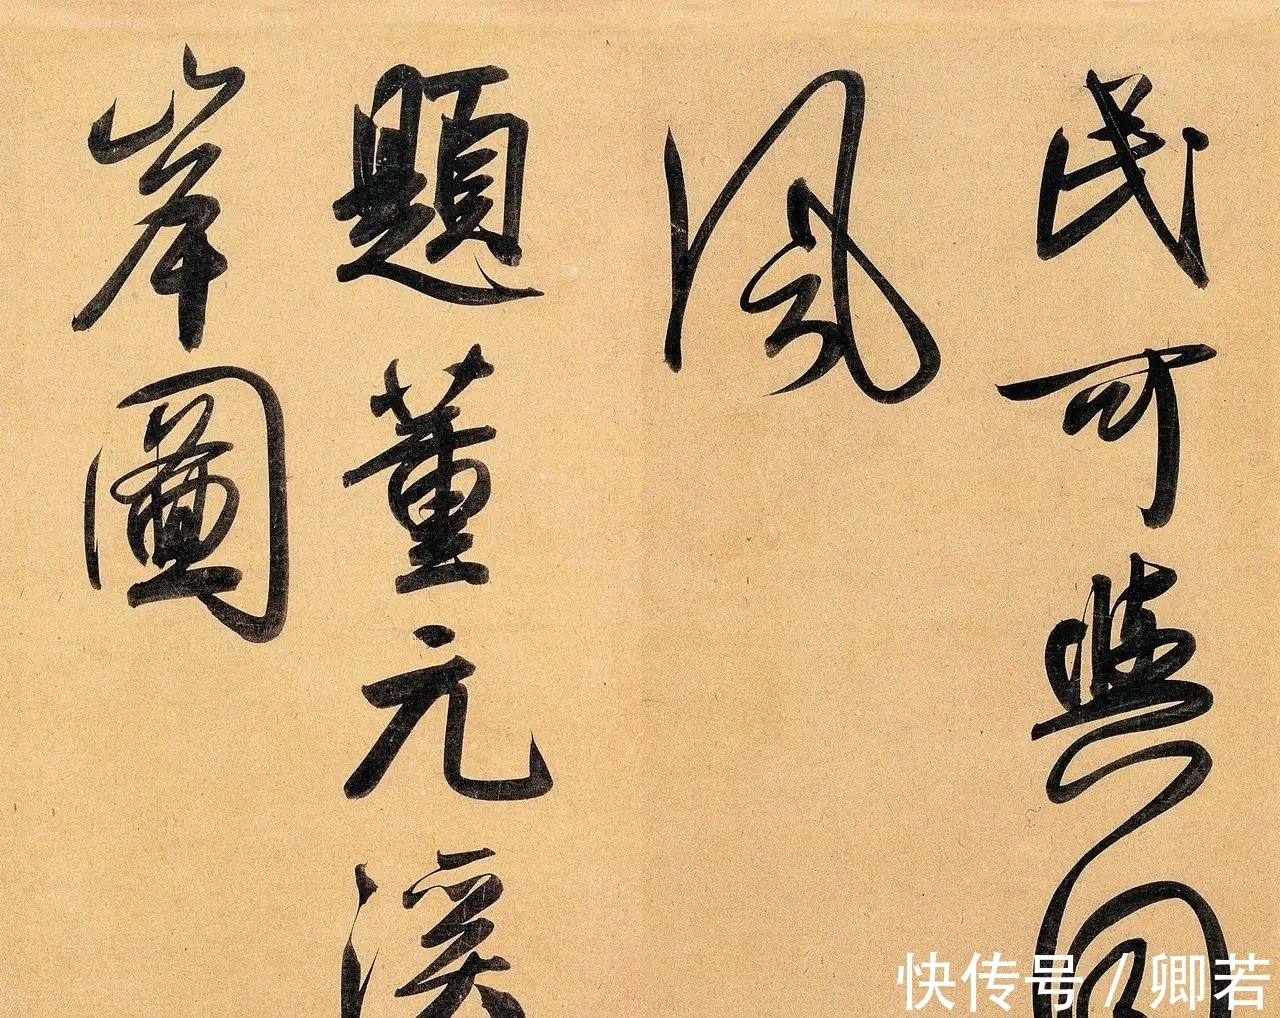 民可與同
風
題董元溪
岸圖
快传号 / 卿若